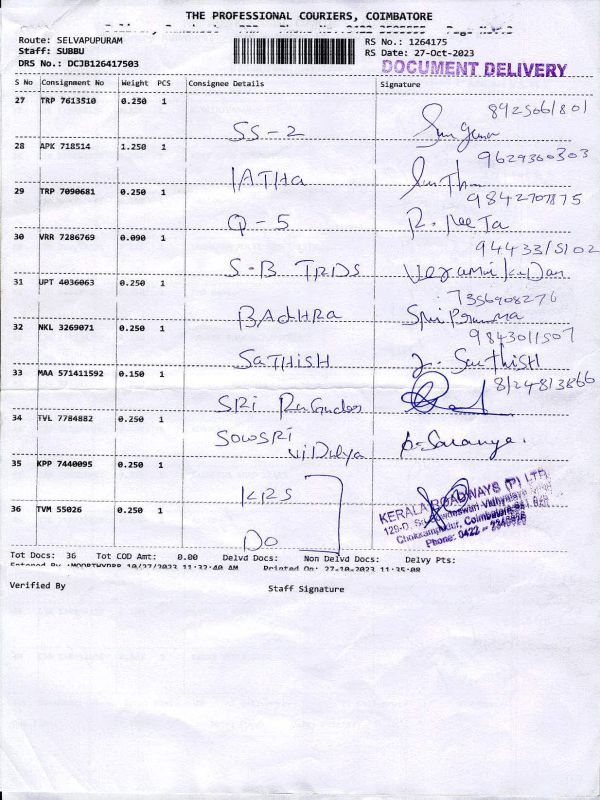 THE PROFESSIONAL COURIERS, COIMBATORE
Route: SELVAPUPURAM
Staff: SUBBU
DRS No.: DCJB126417503
RS No.: 1264175
RS Date: 27-Oct-2023
DOCUMENT DELIVERY
S No Consignment No Weight PCS Consignee Details Signature
27 TRP 7613510 0.250 1 SS-2
28 APK 718514 1.250 1 IATHA 9629360303
29 TRP 7090681 0.250 1 Q-5 R. Neeta 9842707875
30 VRR 7286769 0.090 1 S-B TRDS 94433/5102
31 UPT 4036063 0.250 1 BADHRA 7356908276
32 NKL 3269071 0.250 1 SATHISH Sathish 9843011507
33 MAA 571411592 0.150 1 SRI 8124813866
34 TVL 7784882 0.250 1 SOWSRI Vidhya P. Saranya.
35 KPP 7440095 0.250 1 KRS
36 TVM 55026 0.250 1 DO
KERALA ROADWAYS (P) LTD.
Chokkampudur, Coimbatore
Phone: 0422 -
Tot Docs: 36 Tot COD Amt: 0.00 Delvd Docs: Non Delvd Docs: Delvy Pts:
10/27/2023 11:32:40 AM Printed On: 27-10-2023 11:35:08
Verified By Staff Signature